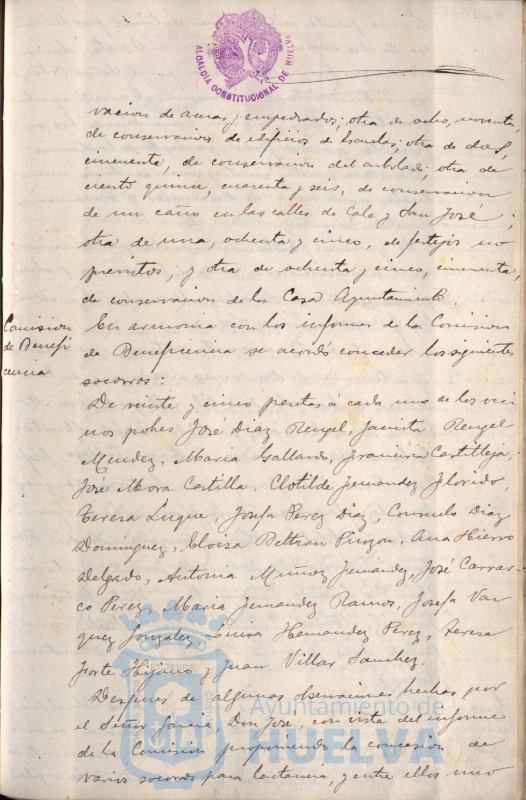 ALCALDIA CONSTITUCIONAL DE HUELVA
vacion de aceras y empedrados; otra de ocho, noventa,
de conservacion de edificios de escuelas; otra de dos,
cincuenta, de conservacion del arbolado; otra de
ciento quince, cuarenta y seis, de conservacion
de un caño en las calles de Cala y San José;
otra de una, ochenta y cinco, de festejos no
previstos; y otra de ochenta y cinco, cincuenta,
de conservacion de la Casa Ayuntamiento.
Comision
de Benefi
cencia
En armonia con los informes de la Comision
de Beneficencia se acordó conceder los siguientes
socorros:
De veinte y cinco pesetas á cada uno de los veci
nos pobres José Diaz Rengel, Jacinta Rengel
Mendez, Maria Gallardo, Francisca Castilleja,
José Mora Castilla, Clotilde Fernandez Florido,
Teresa Luque, Josefa Perez Diaz, Consuelo Diaz
Domínguez, Eloisa Beltran Pinzon, Ana Hierro
Delgado, Antonia Muñoz Fernandez, José Carras-
co Perez, Maria Fernandez Ramos, Josefa Vaz
quez Gonzalez, Luisa Hernandez Perez, Teresa
Forte Hijano y Juan Villar Sanchez.
Despues de algunas observaciones hechas por
el Señor Don José, con vista del informe
de la Comision proponiendo la concesion de
varios socorros para lactancia, y entre ellos uno
Ayuntamiento de
HUELVA